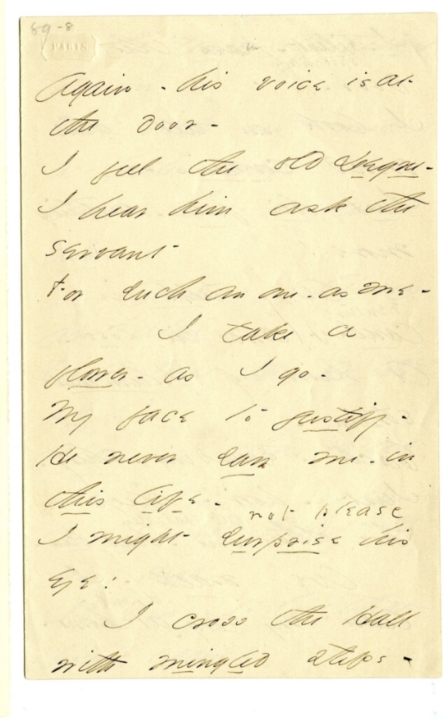 59-8
PARIS
Again - his voice is at
the door -
I feel the old Degree -
I hear him ask the
servant -
For such an one - as me -
I take a
flower - as I go -
My face to justify -
He never saw me - in
this life -
not please
I might surprise his
eye!
I cross the Hall
with mingled steps -